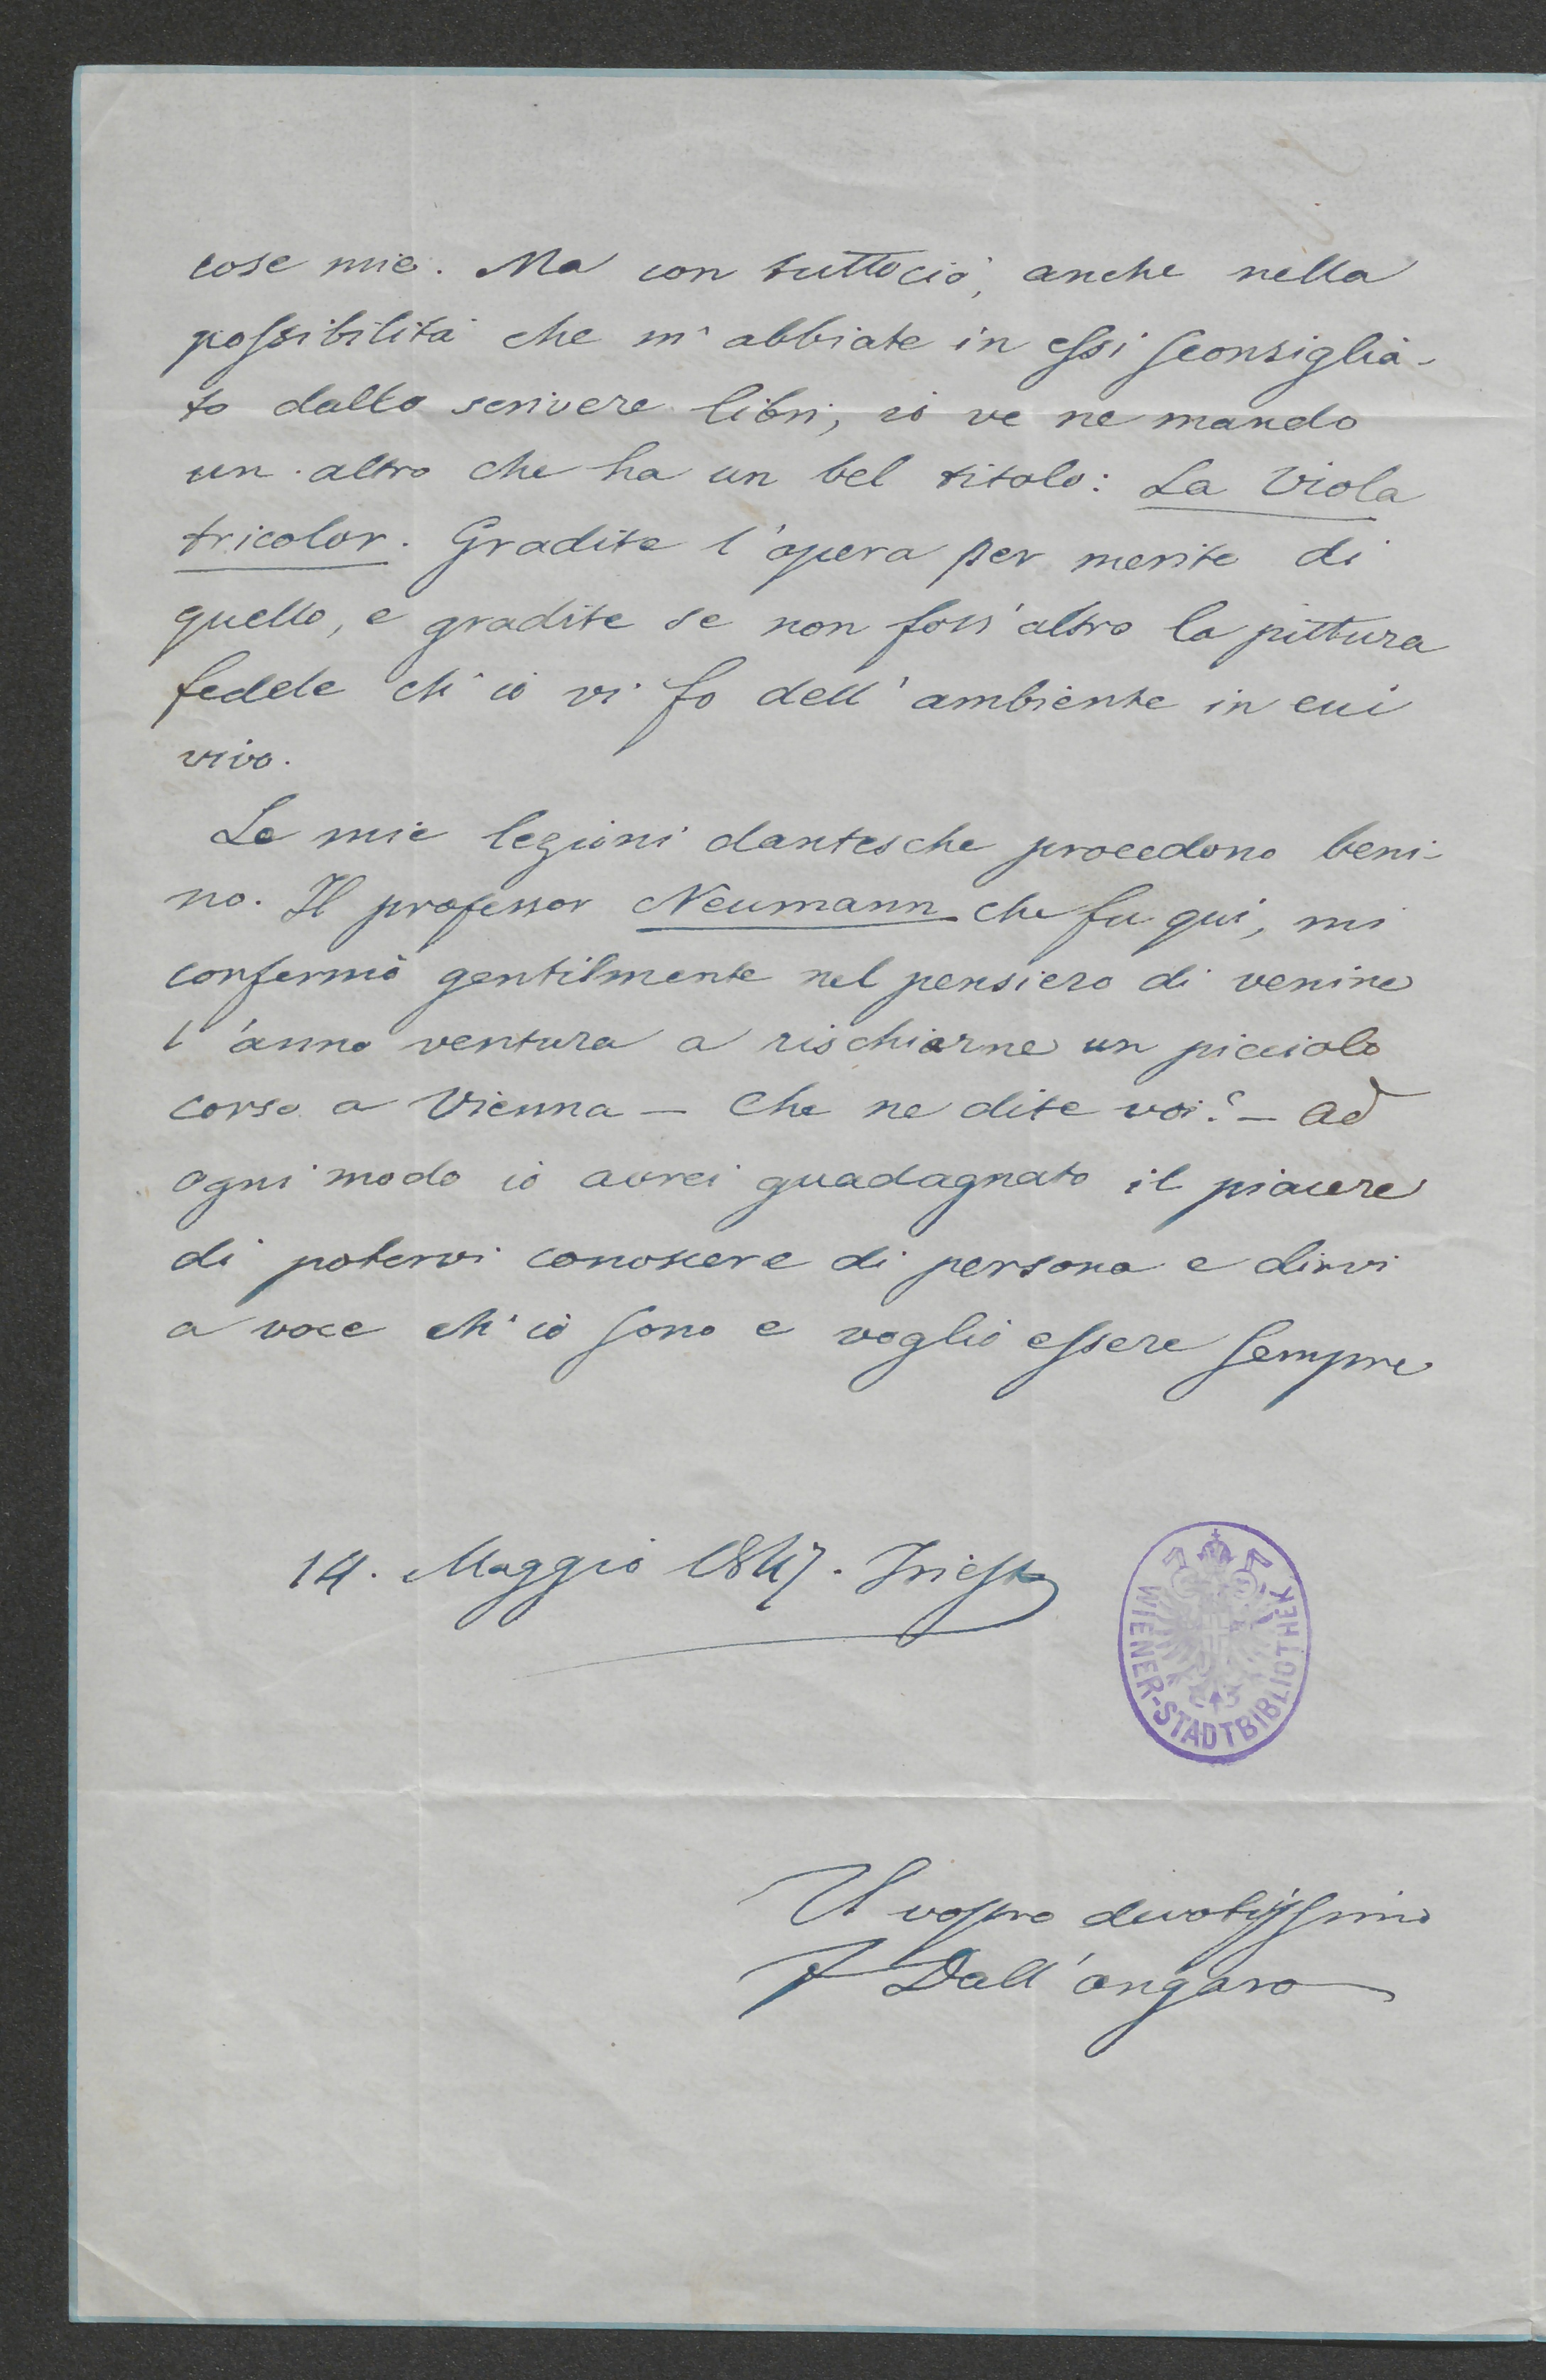 cose mie. Ma con tuttociò, anche nella
possibilità che m'abbiate in essi sconsiglia-
to dallo scrivere libri, io ve ne mando
un altro che ha un bel titolo: La Viola
tricolor. Gradite l'opera per merito di
quello, e gradite se non foss'altro la pittura
fedele ch'io vi fo dell'ambiente in cui
vivo.
Le mie lezioni dantesche procedono beni-
no. Il professor Neumann che fu qui, mi
confermò gentilmente nel pensiero di venire
l'anno venturo a rischiarne un picciolo
corso a Vienna – Che ne dite voi? – Ad
ogni modo io avrei guadagnato il piacere
di potervi conoscere di persona e dirvi
a voce ch'io sono e voglio essere sempre
14. Maggio 1847. Trieste
WIENER-STADTBIBLIOTHEK
Il vostro devotissimo
F Dall'Ongaro